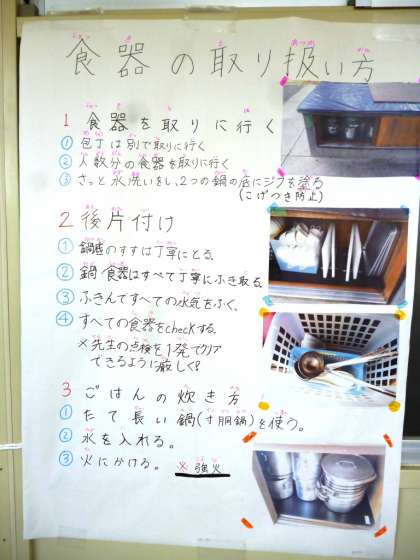 食器の取り扱い方
1 食器を取りに行く
① 包丁は別で取りに行く
② 人数分の食器を取りに行く
③ さっと水洗いをし、2つの鍋の底にジフを塗る
(こげつき防止)
2 後片付け
① 鍋底のすすは丁寧にとる。
② 鍋・食器はすべて丁寧にふき取る。
③ ふきんですべての水気をふく。
④ すべての食器をcheckする。
※先生の点検を1発でクリア
できるように厳しく!
3 ごはんの炊き方
① たて長い鍋(寸胴鍋)を使う。
② 水を入れる。
③ 火にかける。 ※強火